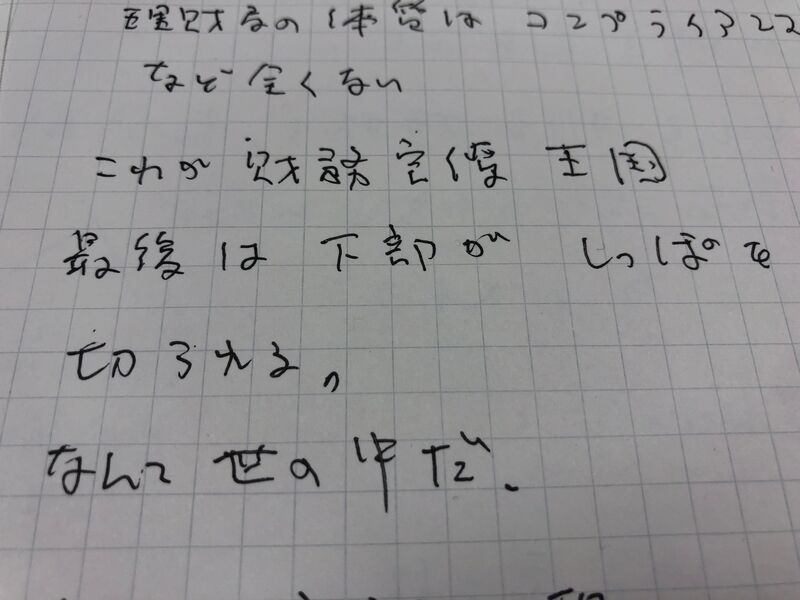 理財局の体質はコンプライアンス
など全くない
これが財務官僚王国
最後は下部がしっぽを
切られる。
なんて世の中だ。